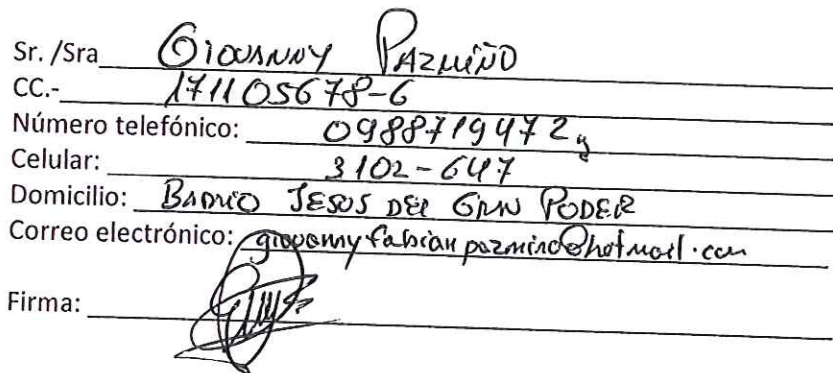 Sr. /Sra GIOVANNY PAZMIÑO
CC.- 171105678-6
Número telefónico: 0988719472 y
Celular: 3102-647
Domicilio: BARRIO JESUS DEL GRAN PODER
Correo electrónico: giovannyfabianpazmino@hotmail.com
Firma: